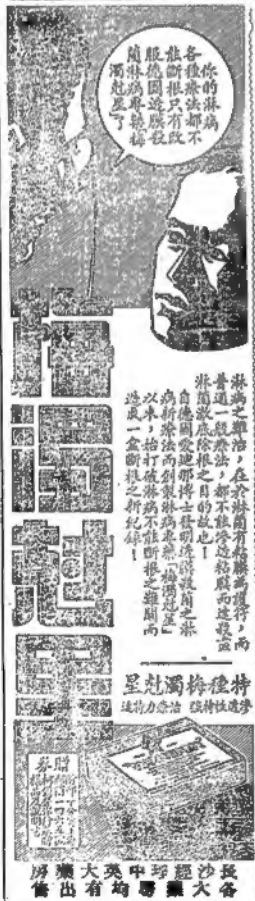 你的淋病
各種療法都不
能斷根只有改
服德國透膜殺
菌淋病專藥梅
濁尅星了
梅濁尅星
淋病之難治，在於淋菌有粘膜為護符，而
普通一般療法，都不能滲透粘膜而達殺滅
淋菌澈底除根之目的故也！
自德國愛迪那博士發明透膜殺菌之淋
病新療法而創製淋病專藥「梅濁尅星」
以來，始打破淋病不能斷根之難關而
造成一盒斷根之新紀錄！
特種梅濁尅星
滲透性特強 治療力特速
贈券
長沙經理中英大藥房
各大藥房均有出售